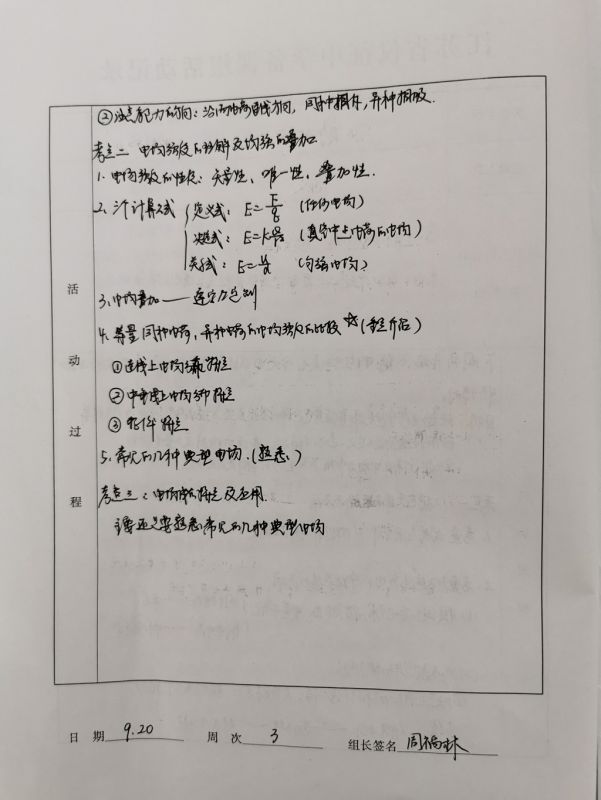 ②注意库仑力的方向：沿两电荷连线方向，同种相斥，异种相吸.
考点二 电场强度的理解及场强的叠加
1. 电场强度的性质：矢量性、唯一性、叠加性.
2. 三个计算公式 定义式：E=F/q (任何电场)
决定式：E=kQ/r² (真空中点电荷的电场)
关系式：E=U/d (匀强电场)
3、电场叠加——平行四边形定则
4. 等量同种电荷，异种电荷的电场强度的比较 ☆
①连线上电场强度
②中垂线上电场
③
5. 常见的几种典型电场.(熟悉)
考点三：电场线的 及应用.
主要还是要熟悉常见的几种典型电场
活动过程
日 期 9.20 周 次 3 组长签名 周福林